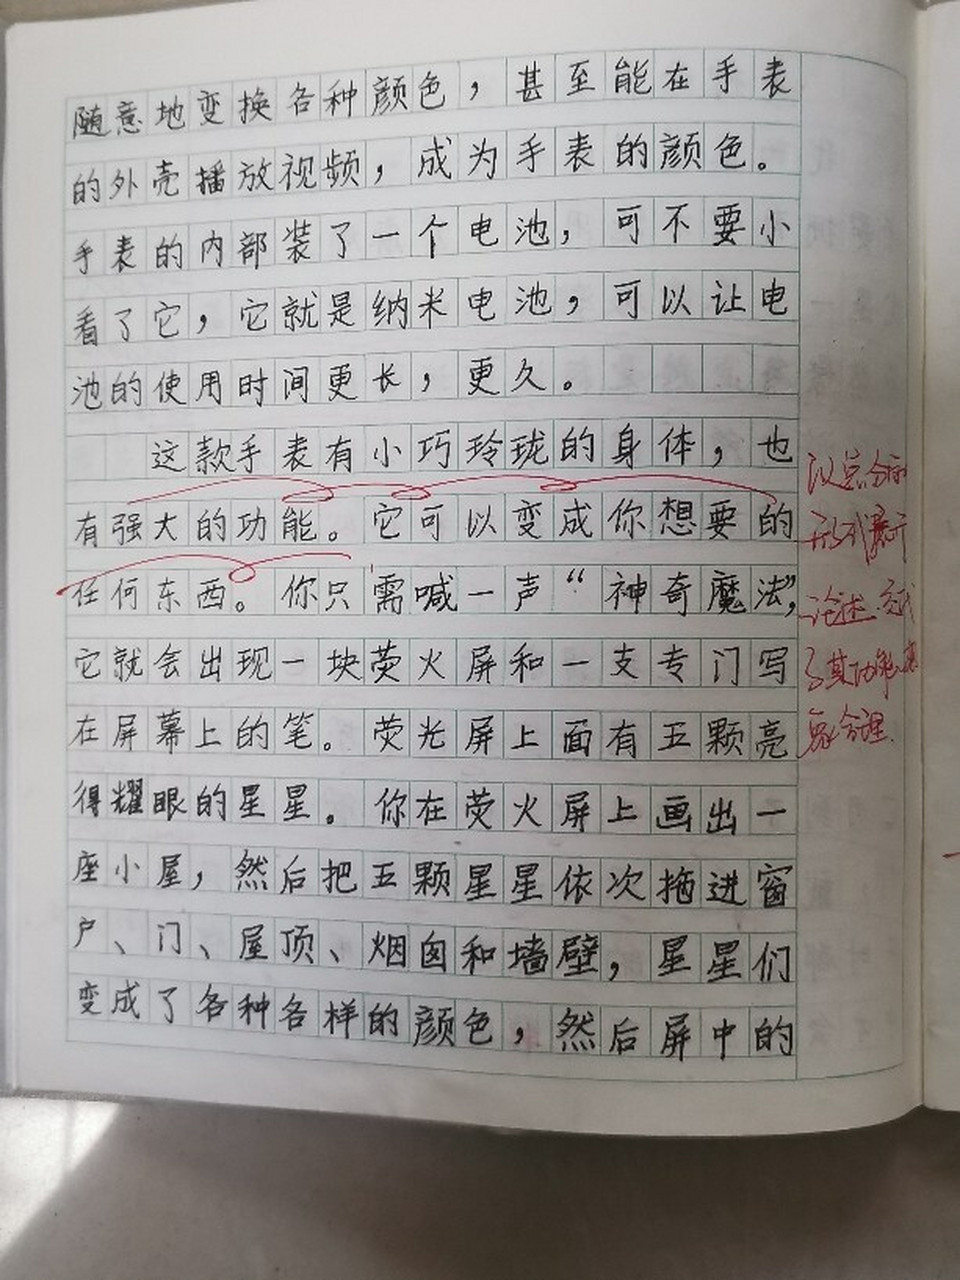 随意地变换各种颜色，甚至能在手表
的外壳播放视频，成为手表的颜色。
手表的内部装了一个电池，可不要小
看了它，它就是纳米电池，可以让电
池的使用时间更长，更久。
这款手表有小巧玲珑的身体，也
有强大的功能。它可以变成你想要的
任何东西。你只需喊一声“神奇魔法”，
它就会出现一块荧火屏和一支专门写
在屏幕上的笔。荧光屏上面有五颗亮
得耀眼的星星。你在荧火屏上画出一
座小屋，然后把五颗星星依次拖进窗
户、门、屋顶、烟囱和墙壁，星星们
变成了各种各样的颜色，然后屏中的
以总分的
形式展开
论述
了其功能
合理